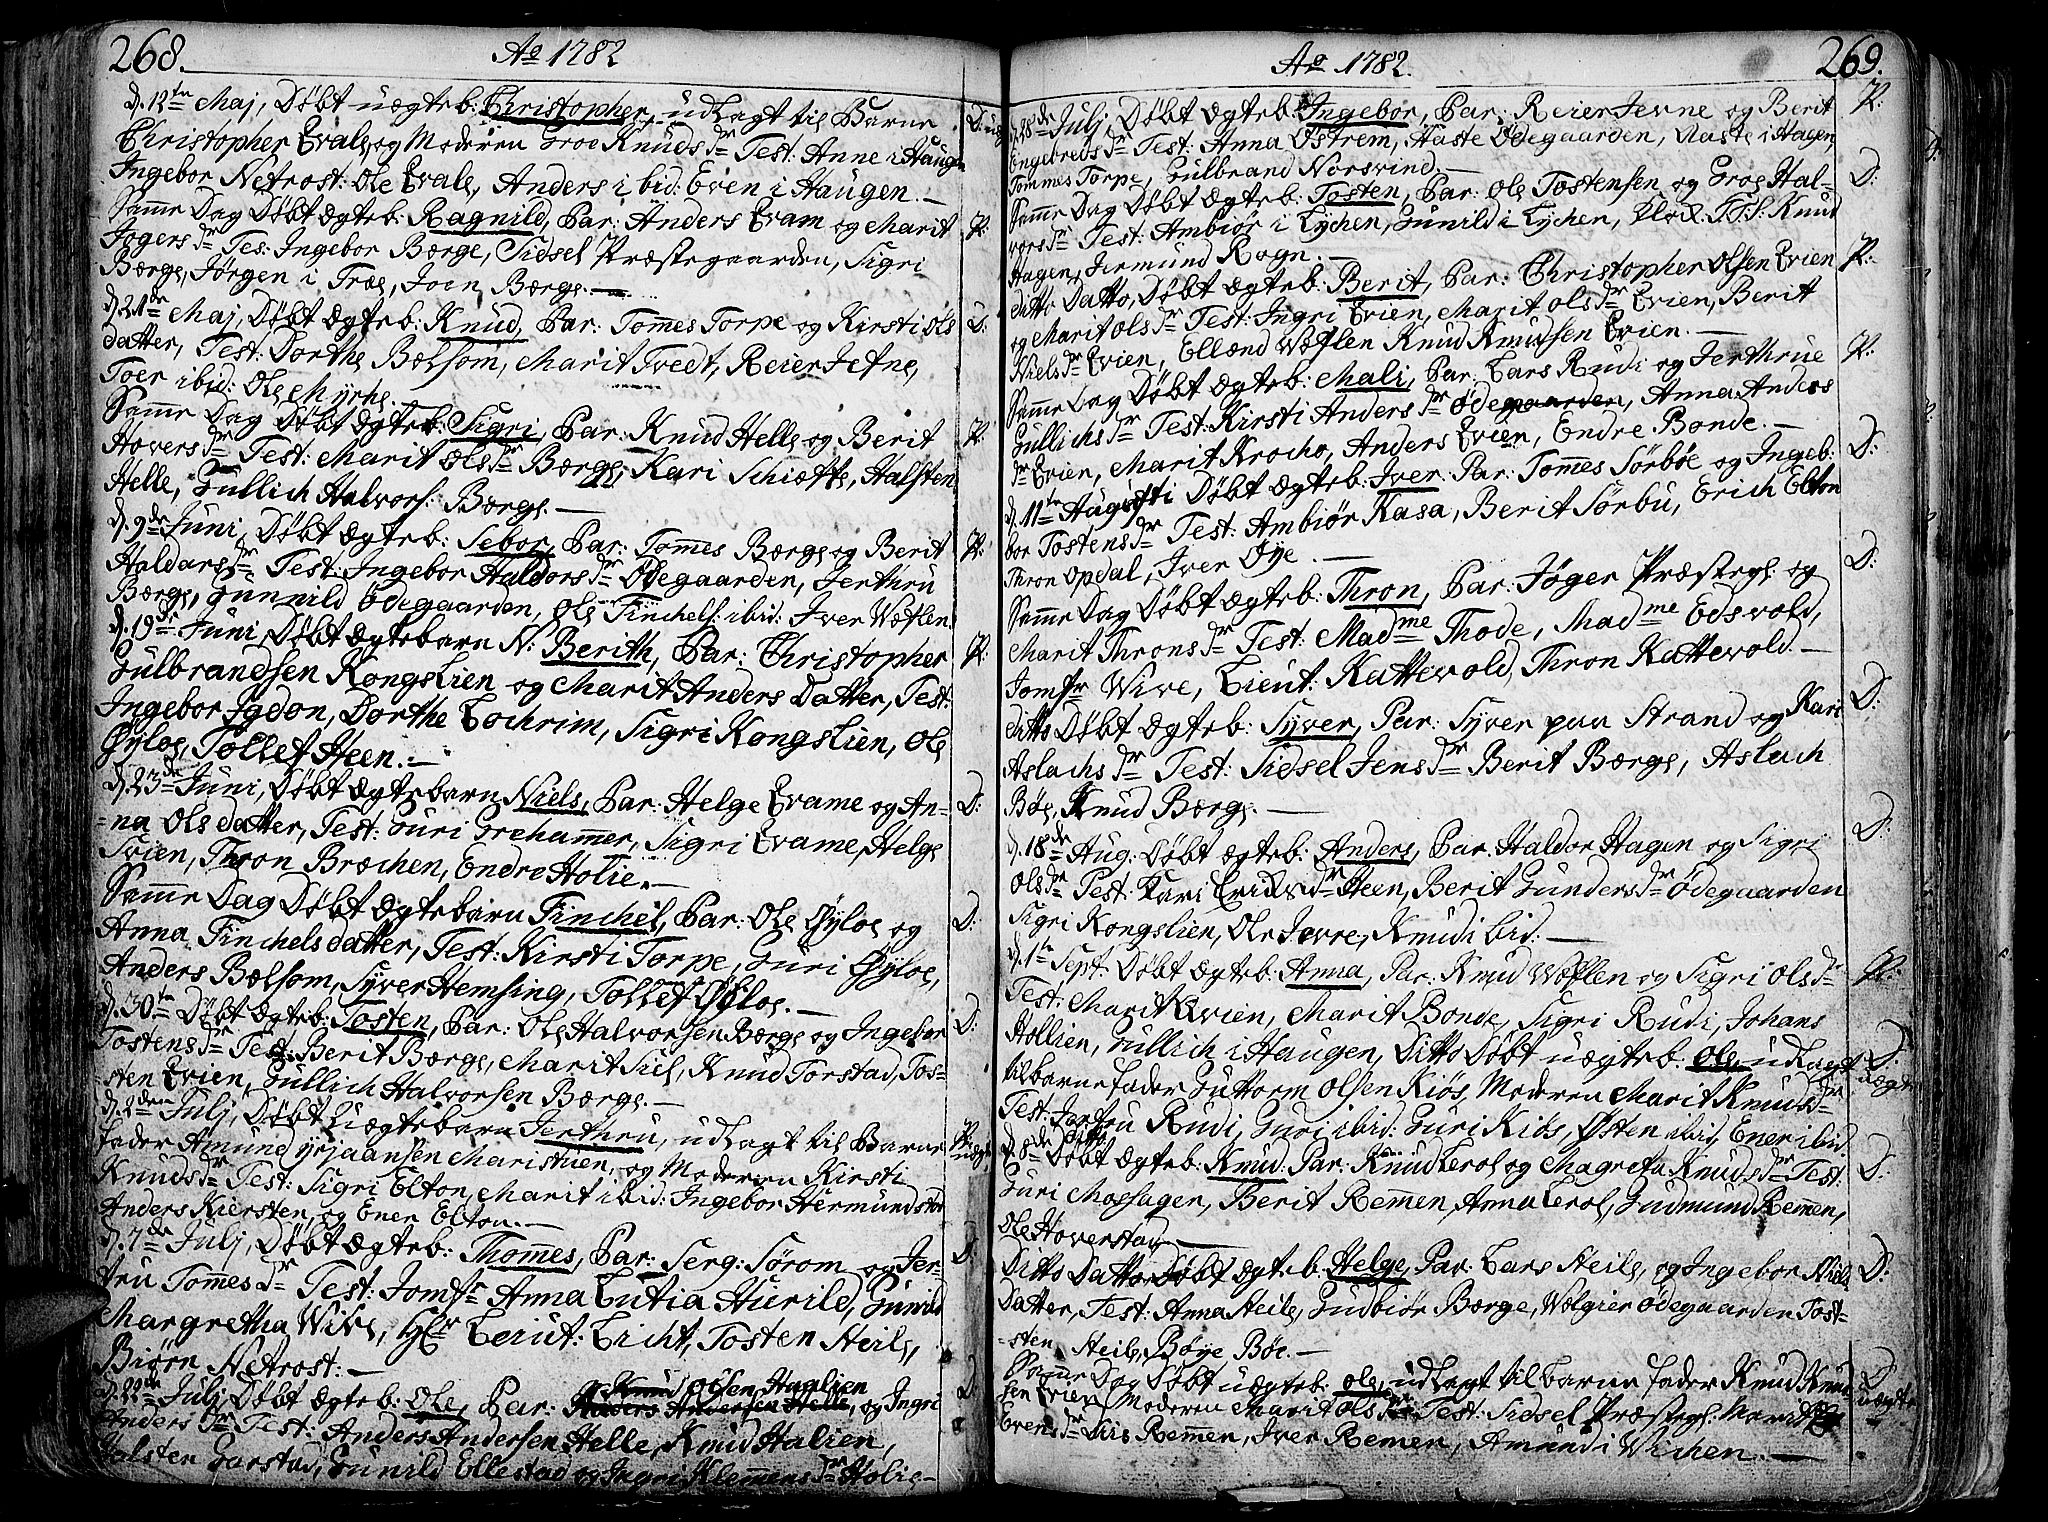 268.
Ao 1782
d. 12te Maj, Døbt uægteb: Christopher, udlagt til Barne
D: uæg
Christopher Qvale, og Moderen Groe Knudsdr Test: Anne i Haugen
Ingebor Netrost: Ole Qvale, Anders ibid: Even i Haugen. –
Samme Dag Døbt Ægteb: Ragnild, Par: Anders Qvam og Marit
P:
Jogersdr Tes: Ingebor Bærge, Sidsel Præstegaarden, Sigri
Bærge, Jørgen i Troe, Join Bærge. –
d. 21de Maj, Døbt Ægteb: Knud, Par: Tommes Torpe og Kirsti Ols
D:
datter, Test: Dorthe Bælsom, Marit Tvedt, Reier Jefne,
Toer ibid: Ole Myrhe. –
Samme Dag Døbt Ægteb: Sigri, Par: Knud Helle og Berit
P:
Hoversdr Test: Marit Olsdr Bærge, Kari Schiette, Halsten
Helle, Gullich Halvors: Bærge. –
d. 9de Juni, Døbt Ægteb: Sebor, Par: Tommes Bærge og Berit
P:
Haldorsdr Test: Ingebor Haldorsdr Ødegaarden, Jerthru
Bærge, Gunnild Ødegaarden, Ole Finchels: ibid: Iver Wæflen
d. 19de Juni, Døbt Ægtebarn N: Berith, Par: Christopher
P:
Gulbrandsen Kongslien og Marit Anders Datter, Test:
Ingebor Igdon, Dorthe Lochrim, Sigri Kongslien, Ole
Øyloe, Tollef Heen. –
d. 23de Juni, Døbt Ægtebarn Niels, Par: Helge Qvame og An-
D:
-na Olsdatter, Test: Guri Grehammer, Sigri Qvame, Helge
Svien, Thron Brochen, Endre Holie. –
Samme Dag Døbt Ægtebarn Finchel, Par: Ole Øyloe og
D:
Anna Finchelsdatter, Test: Kirsti Torpe, Guri Øyloe,
Anders Bælsom, Syver Hemsing, Tollef Øyloe. –
d. 30te Døbt Ægteb: Tosten, Par: Ole Halvorsen Bærge og Ingebor
D:
Tostensdr Test: Berit Bærge, Marit Siel, Knud Torstad, Tos-
-sten Qvien, Gullich Halvorsen Bærge. –
d. 2den Julj, Døbt Uægtebarn Jerthru, udlagt til Barne
P: uægte
fader Amund Ørjaansen Maristuen, og Moderen Kirsti
Knudsdr Test: Sigri Elton, Marit ibid: Ingebor Hermundstad
Anders Kiersten, og Ener Elton. –
d. 7de Julj, Døbt Ægteb: Thommes, Par: Serg: Sørom og Jer-
D:
tru Tommesdr Test: Jomfr Anna Lutia Hurild, Gunild
Margretha Wive, Hr Leiut: Licht, Tosten Heile,
Biørn Netrost: –
d. 22de Julj, Døbt Ægteb: Ole, Par: Knud Olsen Haalien, og Ingri
D:
Andersdr Test: Anders Andersen Helle, Knud Halien,
Halsten Garstad, Gunild Ellestad og Ingri Klemmensdr Holie –
Ao 1782.
269.
d. 28de Julj, Døbt Ægteb: Ingebor, Par: Reier Jevne og Berit
P:
Engebredsdr Test: Anna Østrem, Haste Ødegaarden, Naste i Hagen
Tommes Torpe, Gulbrand Norsvind. –
Samme Dag Døbt Ægteb: Tosten, Par: Ole Tostensen og Groe Hal-
D:
vorsdr Test: Ambiør i Lychen, Gunild i Lychen, Kloch: Knud
Hagen, Jermund Rogn. –
Ditto Datto, Døbt Ægteb: Berit, Par: Christopher Olsen Qvien
P:
og Marit Olsdr Test: Ingri Qvien, Marit Olsdr Qvien, Berit
Nielsdr Qvien, Ellænd Wæflen Knud Knudsen Qvien. –
Samme Dag Døbt Ægteb: Mali, Par: Lars Rudi og Jerthrue
P:
Gullichsdr Test: Kirsti Andersdr Ødegaarden, Anna Anders
dr Qvien, Marit Krocho, Anders Qvien, Endre Bonde. –
d. 11te Augusti Døbt Ægteb: Iver, Par: Tommes Sørbøe og Ingeb:
D:
bor Tostensdr Test: Ambiør Kasa, Berit Sørbu, Erich Elton
Thron Opdal, Iver Øye. –
Samme Dag Døbt Ægteb: Thron, Par: Jøger Præsteg: og
D:
Marit Thronsdr Test: Madme Thode, Madme Edsvold,
Jomfr Wive, Lieut: Kattevold, Thron Kattevold. –
Ditto Døbt Ægteb: Syver, Par: Syver paa Strand og Kari
D:
Aslachsdr Test: Sidsel Jensdr Berit Bærge, Aslach
Bøe, Knud Bærge. –
d. 18de Aug: Døbt Ægteb: Anders, Par: Haldor Hagen og Sigri
D:
Olsdr Test: Kari Eriksdr Heen, Berit Gundersdr Ødegaarden
Sigri Kongslien, Ole Jevre, Knud ibid: –
d. 1te Sept: Døbt Ægteb: Anna, Par: Knud Wæflen og Sigri Olsdr
P:
Test: Marit Qvien, Marit Bonde, Sigri Rudi, Johans
Hollien, Gullich i Haugen, Ditto Døbt uægteb: Ole, udlagt
D: uægte
til barnefader Guttorm Olsen Kiøs, Moderen Marit Knudsdr
Test: Jertru Rudi, Guri ibid: Guri Kiøs, Østen ibid, Ener ibid.
d. 8de Ditto Døbt Ægteb: Knud Par: Knud Lerol og Magreta Knudsdr Test:
D:
Guri Moehagen, Berit Remmen, Anna Lerol, Gudmund Remmen,
Ole Hoverstad –
Ditto Datto Døbt Ægteb Helge, Par: Lars Heile, og Ingebor Niels
D:
Datter, Test: Anna Heile, Gudbiør Bærge, Wælgier Ødegaarden Tost-
-sten Heile, Bøye Bøe. –
Samme Dag Døbt uægteb: Ole, udlagt til barne fader Knud Knud
D: uægte
sen Qvien Moderen Marit Olsdr Test: Sidsel Præsteg: Marit
Evensdr Siri Remmen, Iver Remen, Amund i Wichen. –